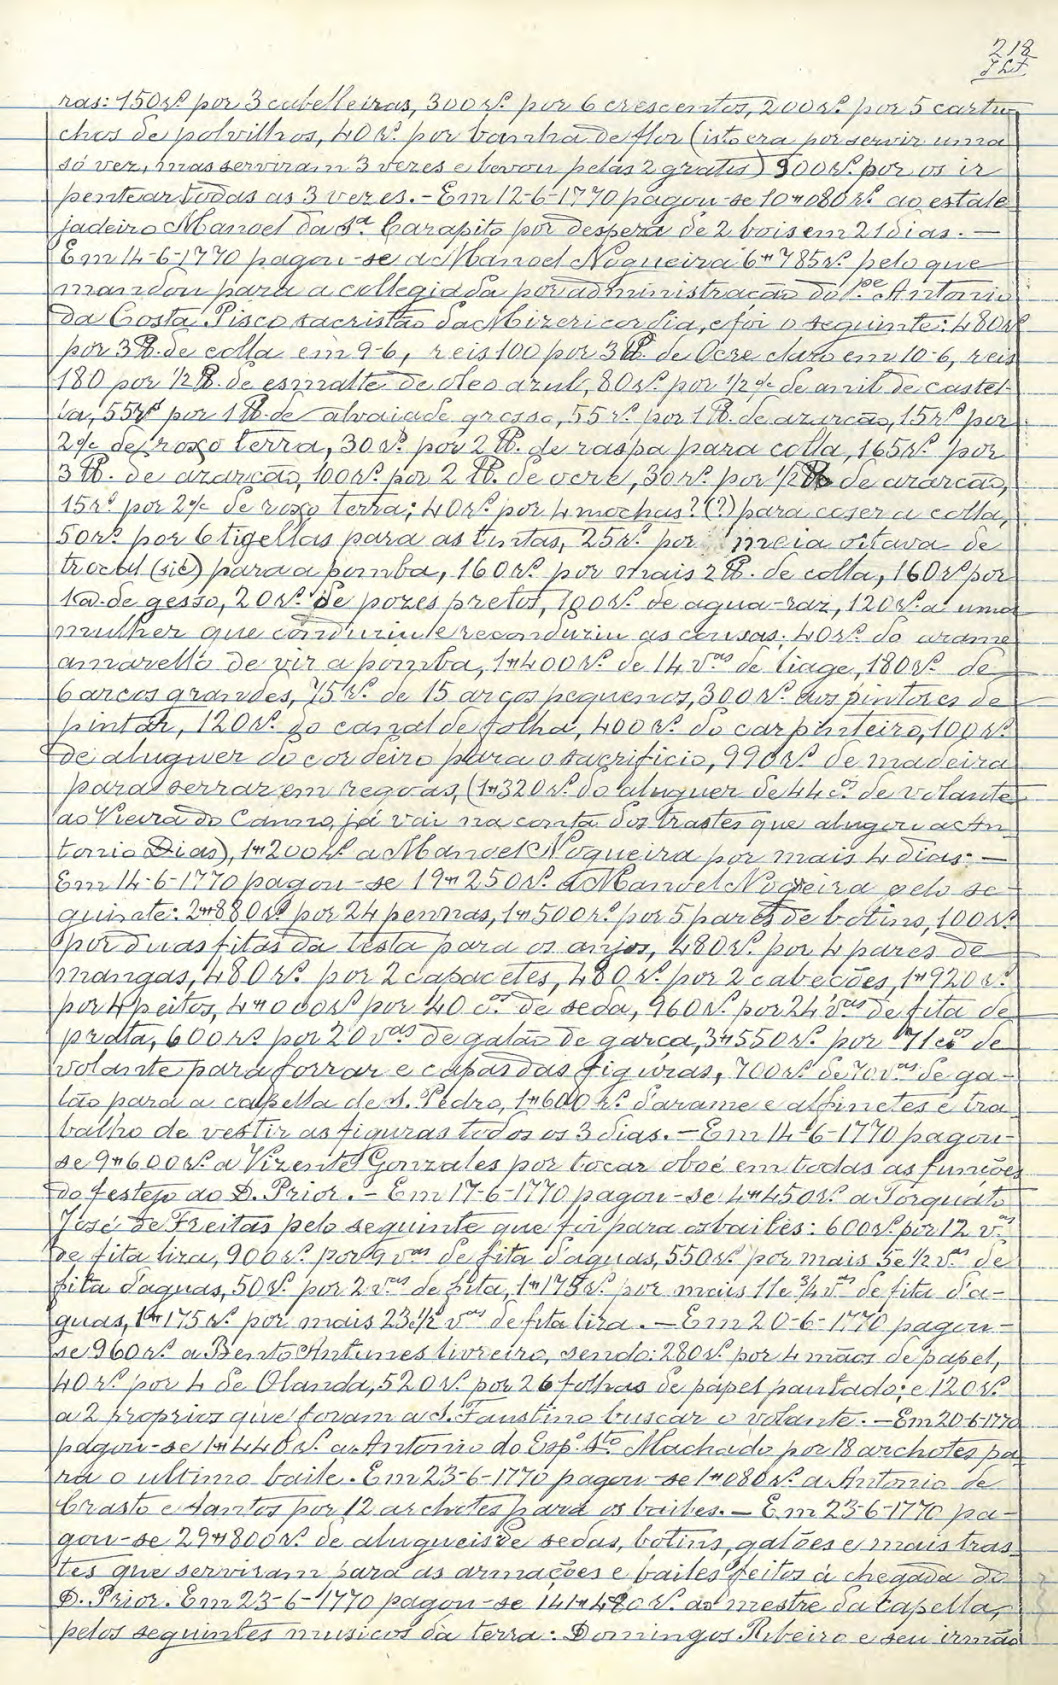 218
ras: 150 rs. por 3 cabelleiras, 300 rs. por 6 crescentes, 200 rs. por 5 cartu-
chos de polvilhos, 40 rs. por banha de flor (isto era por servir uma
só vez, mas serviram 3 vezes e levou pelas 2 gratis) 900 rs. por os ir
pentear todas as 3 vezes. - Em 12-6-1770 pagou-se 10#080 rs. ao estala-
jadeiro Manoel da Sª Carapito por despeza de 2 bois em 21 dias. -
Em 14-6-1770 pagou-se a Manoel Nogueira 6#785 rs. pelo que
mandou para a collegiada por administração do Pe. Antonio
da Costa Pisco sacristão da Mizericordia, e foi o seguinte: 480 rs
por 3 lb. de colla em 9-6, reis 100 por 3 lb. de Ocre claro em 10-6, reis
180 por 1/2 lb. de esmalte de oleo azul, 80 rs. por 1/2 qª de anil de castel-
la, 55 rs por 1 lb. de alvaiade grosso, 55 rs. por 1 lb. de azarcão, 15 rs. por
2 qª de roxo terra, 30 rs. por 2 lb. de raspa para colla, 165 rs. por
3 lb. de azarcão, 100 rs. por 2 lb. de ocre, 30 rs. por 1/2 lb de azarcão,
15 rs. por 2 qª de roxo terra; 40 rs. por 4 mochas? (?) para coser a colla,
50 rs. por 6 tigellas para as tintas, 25 rs. por meia oitava de
trocal (sic) para a pomba, 160 rs. por mais 2 lb. de colla, 160 rs por
1@. de gesso, 20 rs. de pozes pretos, 100 rs. de agua-raz, 120 rs. a uma
mulher que conduziu e reconduziu as cousas; 40 rs. do arame
amarello de vir a pomba, 1#400 rs. de 14 vas de liage, 180 rs. de
6 arcos grandes, 75 rs. de 15 arcos pequenos, 300 rs. aos pintores de
pintar, 120 rs. do canal de folha, 400 rs. do carpinteiro, 100 rs.
de aluguer do cordeiro para o sacrificio, 990 rs. de madeira
para serrar em regoas, (1#320 rs. do aluguer de 44 cos de volante
ao Vieira do Canno, já vai na conta dos trastes que alugou a An-
tonio Dias), 1#200 rs. a Manoel Nogueira por mais 4 dias; -
Em 14-6-1770 pagou-se 19#250 rs. a Manoel Nogueira pelo se-
guinte: 2#880 rs. por 24 pennas, 1#500 rs. por 5 pares de botins, 100 rs.
por duas fitas da testa para os anjos, 480 rs. por 4 pares de
mangas, 480 rs. por 2 capacetes, 480 rs. por 2 cabeções, 1#920 rs.
por 4 peitos, 4#000 rs. por 40 cos de seda, 960 rs. por 24 vas de fita de
prata, 600 rs. por 20 vas de galão de garça, 3#550 rs. por 71 cos de
volante para forrar e capas das figuras, 700 rs. de 70 vas de ga-
lão para a capella de S. Pedro, 1#600 rs. d'arame e alfinetes e tra-
balho de vestir as figuras todos os 3 dias. - Em 14-6-1770 pagou-
se 9#600 rs. a Vizente Gonzales por tocar oboé em todas as funções
do festejo ao D. Prior. - Em 17-6-1770 pagou-se 4#450 rs. a Torquato
José de Freitas pelo seguinte que foi para os bailes: 600 rs. por 12 vas
de fita lira, 900 rs. por 9 vas de fita d'aguas, 550 rs. por mais 5 e 1/2 vas de
fita d'aguas, 50 rs. por 2 vas de fita, 1#175 rs. por mais 11 e 3/4 vas de fita d'a-
guas, 1#175 rs. por mais 23 1/2 vas de fita lira. - Em 20-6-1770 pagou-
se 960 rs. a Bento Antunes livreiro, sendo: 280 rs. por 4 mãos de papel,
40 rs. por 4 de Olanda, 520 rs. por 26 folhas de papel pautado; e 120 rs.
a 2 proprios que foram a S. Faustino buscar o volante. - Em 20-6-1770
pagou-se 1#440 rs. a Antonio do Espº Stº Machado por 18 archotes pa-
ra o ultimo baile. Em 23-6-1770 pagou-se 1#080 rs. a Antonio de
Crasto e Santos por 12 archotes para os bailes. - Em 23-6-1770 pa-
gou-se 29#800 rs. de alugueis de sedas, botins, galões e mais tras-
tes que serviram para as armações e bailes feitos á chegada do
D. Prior. Em 23-6-1770 pagou-se 141#480 rs. ao mestre da capella,
pelos seguintes musicos da terra: Domingos Ribeiro e seu irmão